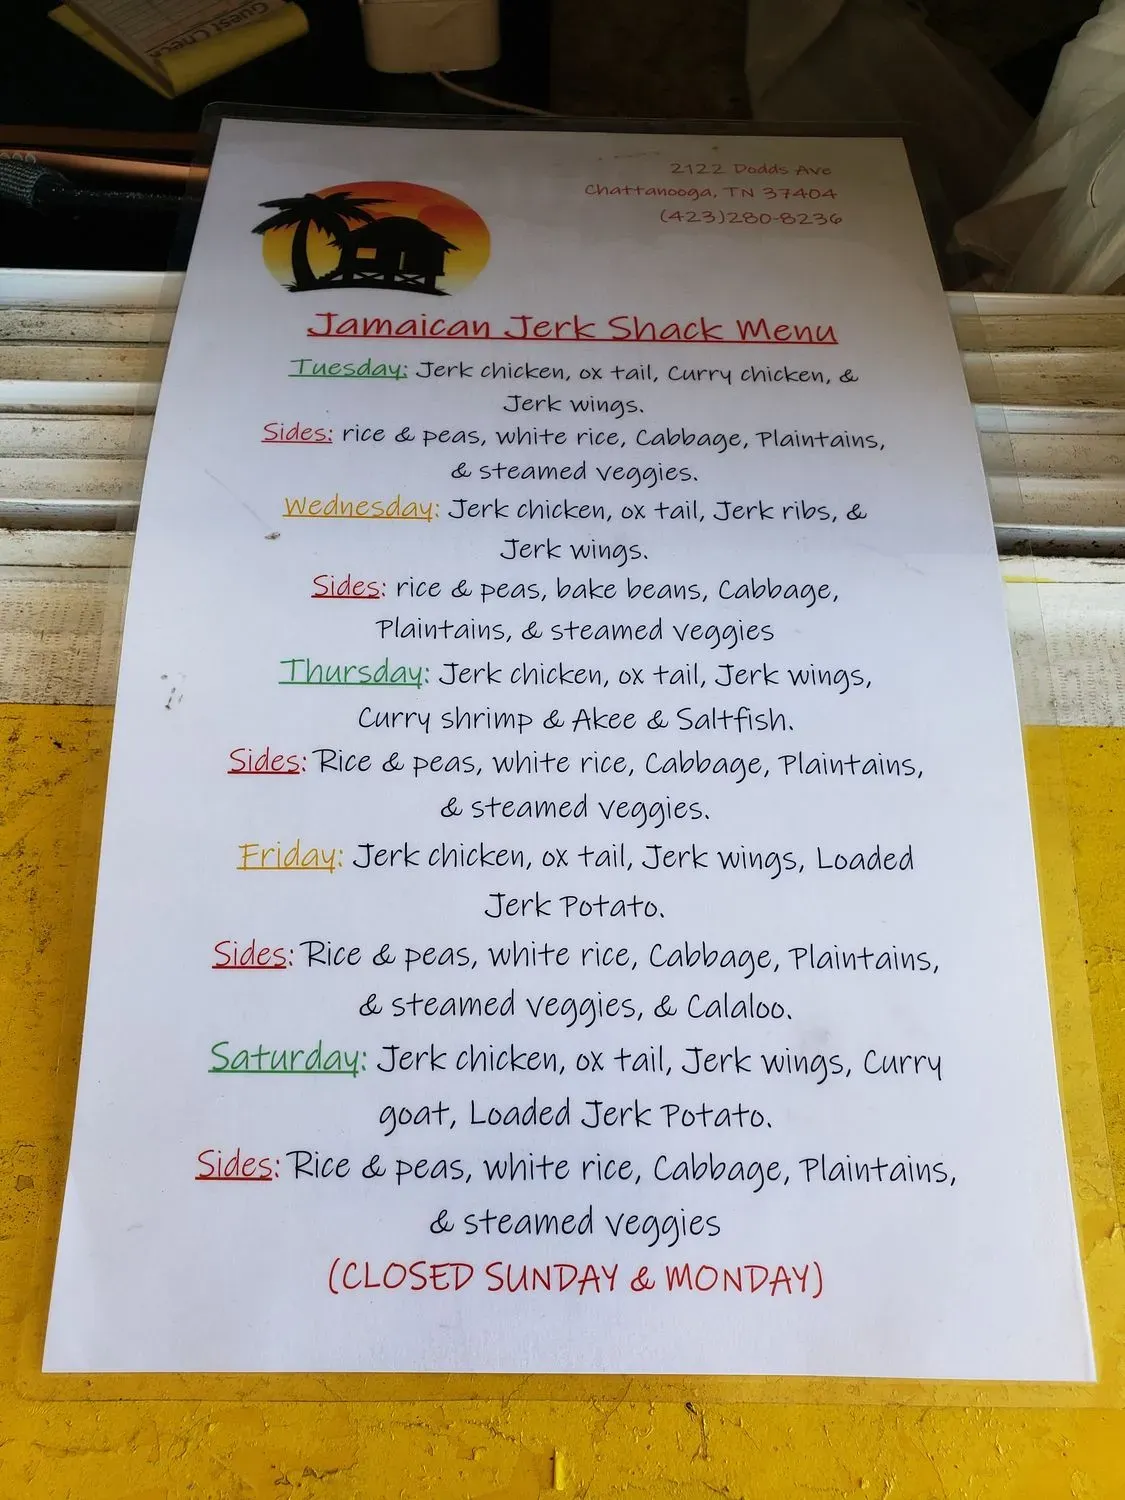 Guest Check
2122 Dodds Ave
Chattanooga, TN 37404
(423)280-8236
Jamaican Jerk Shack Menu
Tuesday: Jerk chicken, ox tail, Curry chicken, &
Jerk wings.
Sides: rice & peas, white rice, Cabbage, Plaintains,
& steamed veggies.
Wednesday: Jerk chicken, ox tail, Jerk ribs, &
Jerk wings.
Sides: rice & peas, bake beans, Cabbage,
Plaintains, & steamed veggies
Thursday: Jerk chicken, ox tail, Jerk wings,
Curry shrimp & Akee & Saltfish.
Sides: Rice & peas, white rice, Cabbage, Plaintains,
& steamed veggies.
Friday: Jerk chicken, ox tail, Jerk wings, Loaded
Jerk Potato.
Sides: Rice & peas, white rice, Cabbage, Plaintains,
& steamed veggies, & Calaloo.
Saturday: Jerk chicken, ox tail, Jerk wings, Curry
goat, Loaded Jerk Potato.
Sides: Rice & peas, white rice, Cabbage, Plaintains,
& steamed veggies
(CLOSED SUNDAY & MONDAY)